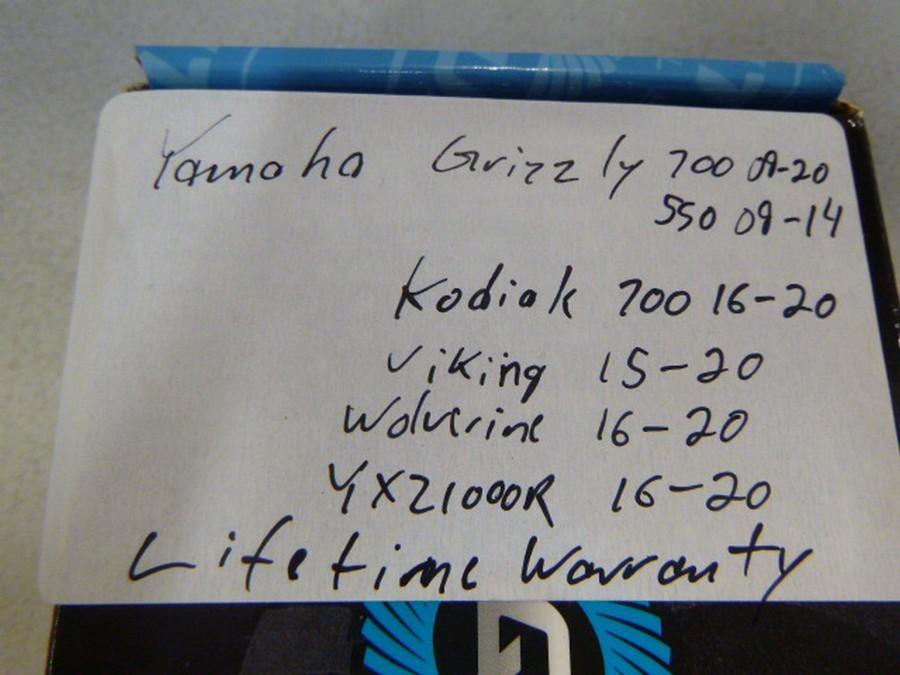 Yamaha Grizzly 700 09-20
550 09-14
Kodiak 700 16-20
Viking 15-20
Wolverine 16-20
YXZ1000R 16-20
Lifetime Warranty